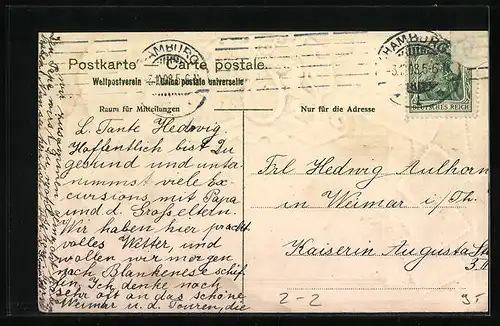 HAMBURG
3.10.08.5-6
HAMBURG
DEUTSCHES REICH
Postkarte
Carte postale
Weltpostverein
Union postale universelle
Raum für Mitteilungen
Nur für die Adresse
L. Tante Hedwig.
Hoffentlich bist Du
gesund und unter-
nimmst viele Ex-
cursions mit Papa
und d. Großeltern.
Wir haben hier pracht
volles Wetter, und
wollen wir morgen
nach Blankenese schif-
fen. Ich denke noch
sehr oft an das schöne
Weimar u. d. Touren, die
Frl Hedwig Aulhorn
in Weimar i/Th.
Kaiserin Augusta Str
3 II
2-2